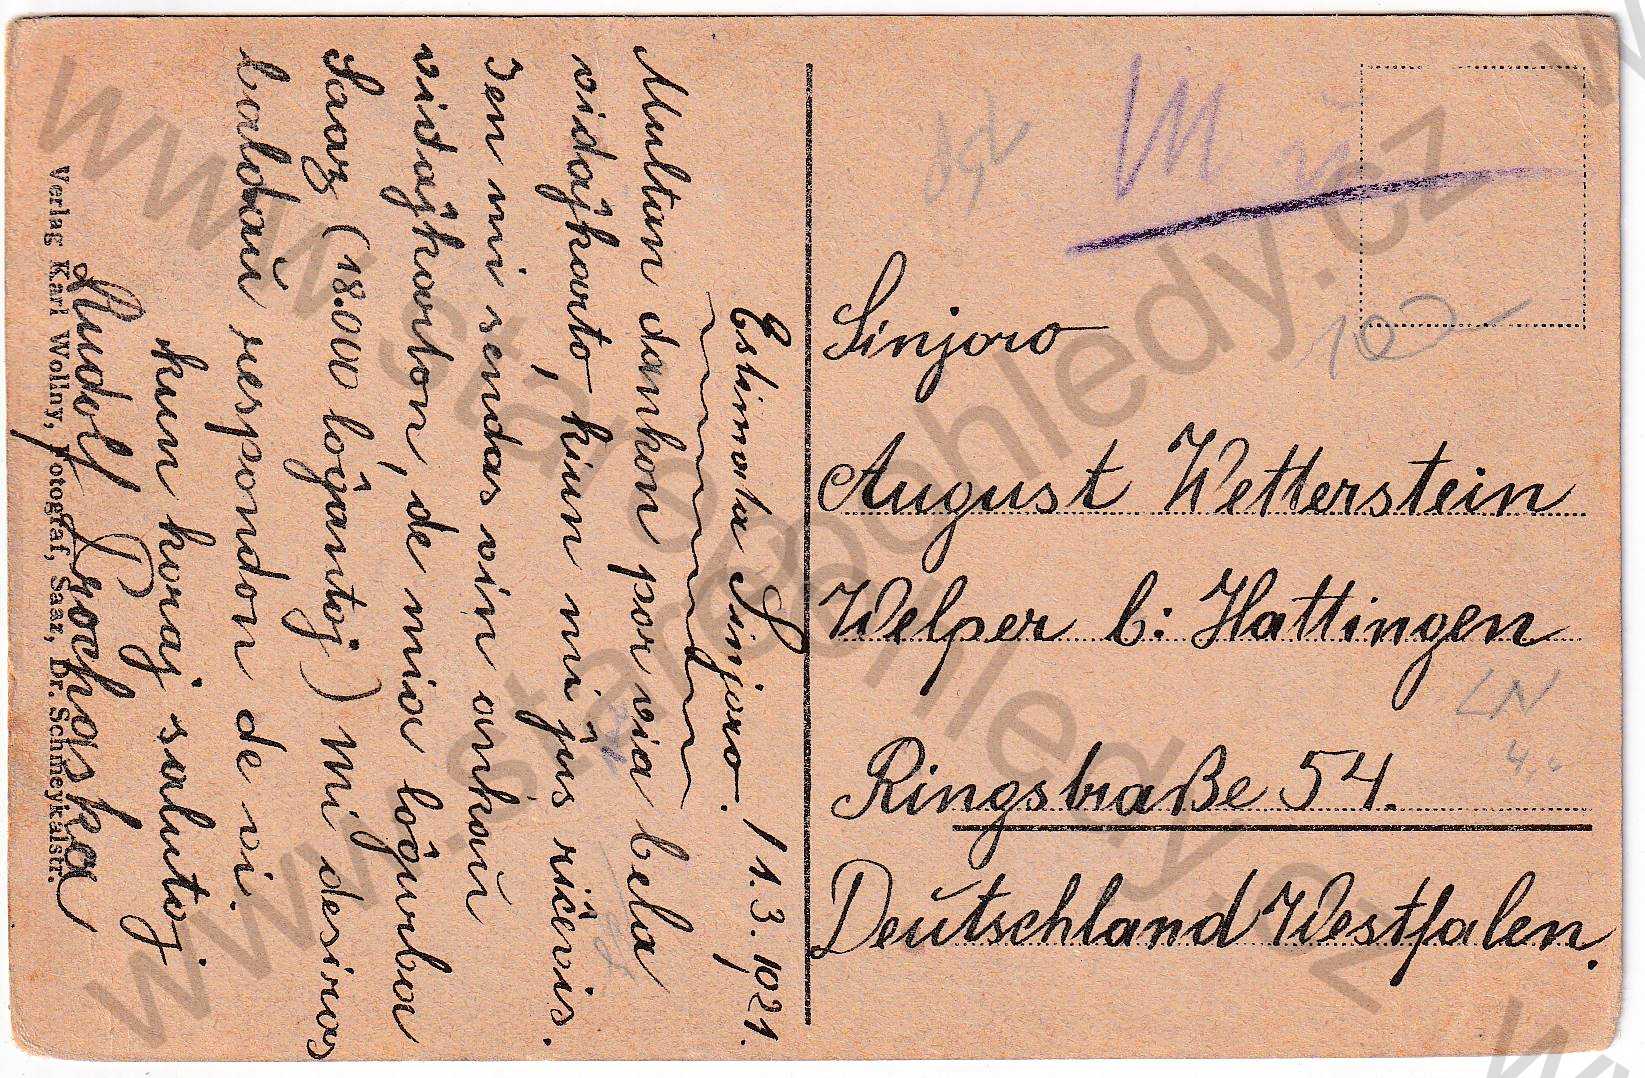 Estimata Sinjoro. 11.3.1921.
Multan dankon por via bela
vidajkarto, kiun mi jus ricevis.
Jen mi sendas vin ankaŭ
vidajkarton, de mia loĝurba
Saaz (18.000 loĝantoj) mi desiras
baldaŭ respondon de vi.
kun koraj salutoj
Rudolf Prochaska
Verlag Karl Wollny, Fotograf, Saaz, Dr. Schmeykalstr.
Sinjoro
August Wetterstein
Welper b: Hattingen
Ringstraße 54.
Deutschland Westfalen.
100
LN
www.starepohledy.cz
www.starepohledy.cz